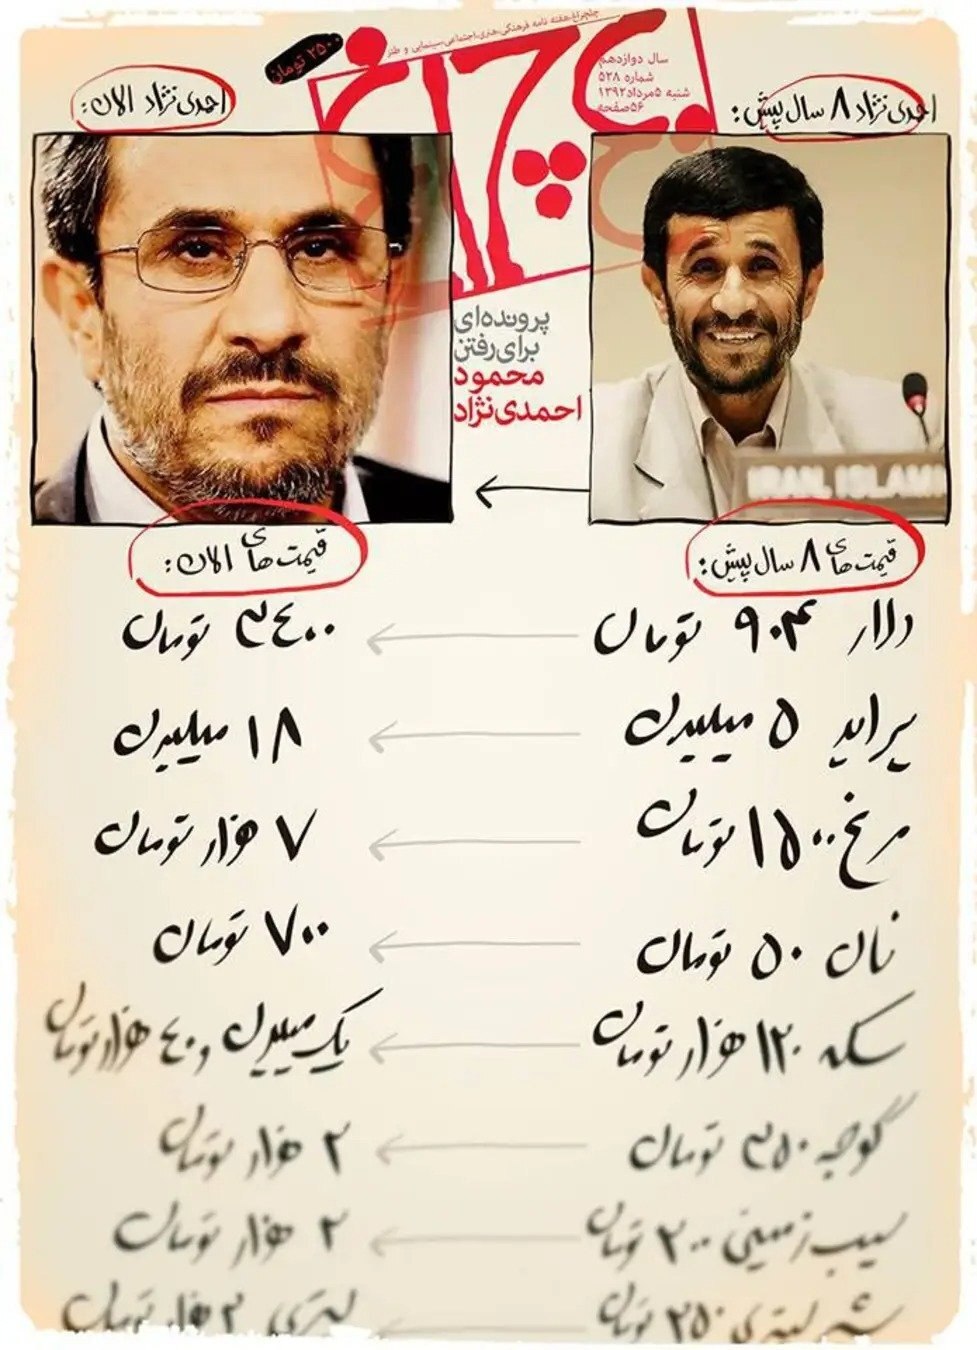 چلچراغ، هفته نامه فرهنگی، هنری، اجتماعی، سینمایی و طنز
۲۵۰۰ تومان
چلچراغ
سال دوازدهم
شماره ۵۲۸
شنبه ۵ مرداد ۱۳۹۲
۵۶ صفحه
احمدی‌نژاد ۸ سال پیش:
احمدی‌نژاد الان:
IRAN, ISLAMI
پرونده‌ای
برای رفتن
محمود
احمدی‌نژاد
قیمت‌های ۸ سال پیش: قیمت‌های الان:
دلار ۹۰۴ تومان ۳۴۰۰ تومان
پراید ۵ میلیون ۱۸ میلیون
مرغ ۱۵۰۰ تومان ۷ هزار تومان
نان ۵۰ تومان ۷۰۰ تومان
سکه ۱۲۰ هزار تومان یک میلیون و ۴۰ هزار تومان
گوجه ۳۵۰ تومان ۲ هزار تومان
سیب زمینی ۲۰۰ تومان ۲ هزار تومان
شیر لیتری ۲۵۰ تومان لیتری ۲ هزار تومان